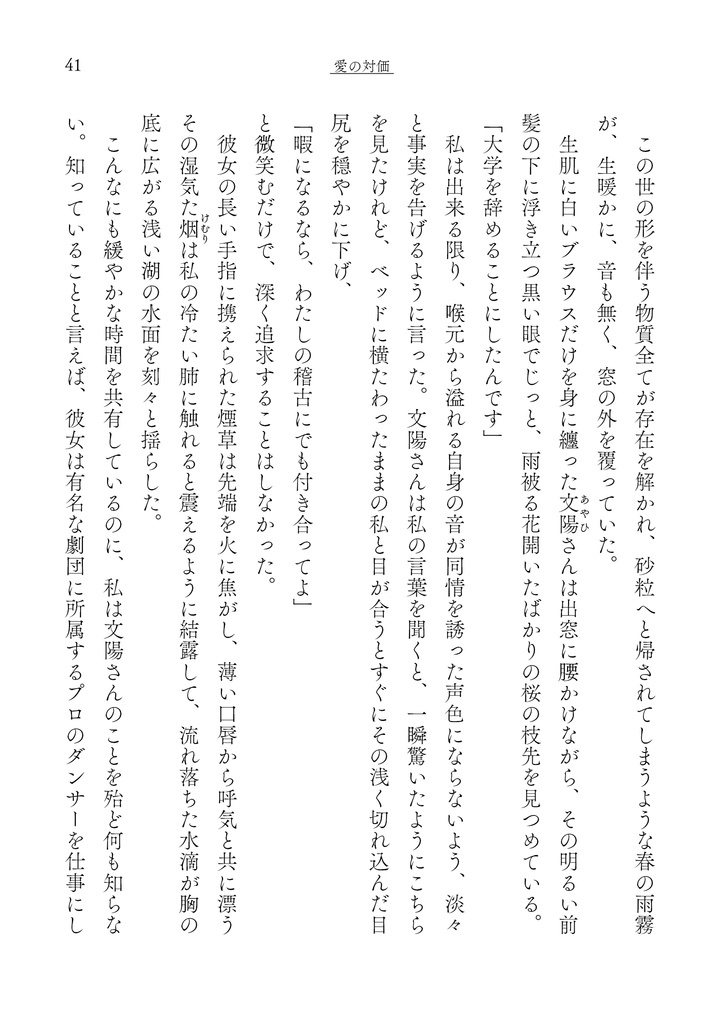 41
愛の対価
この世の形を伴う物質全てが存在を解かれ、砂粒へと帰されてしまうような春の雨霧
が、生暖かに、音も無く、窓の外を覆っていた。
生肌に白いブラウスだけを身に纏った文陽さんは出窓に腰かけながら、その明るい前
あやひ
髪の下に浮き立つ黒い眼でじっと、雨被る花開いたばかりの桜の枝先を見つめている。
「大学を辞めることにしたんです」
私は出来る限り、喉元から溢れる自身の音が同情を誘った声色にならないよう、淡々
と事実を告げるように言った。文陽さんは私の言葉を聞くと、一瞬驚いたようにこちら
を見たけれど、ベッドに横たわったままの私と目が合うとすぐにその浅く切れ込んだ目
尻を穏やかに下げ、
「暇になるなら、わたしの稽古にでも付き合ってよ」
と微笑むだけで、深く追求することはしなかった。
彼女の長い手指に携えられた煙草は先端を火に焦がし、薄い口唇から呼気と共に漂う
その湿気た烟は私の冷たい肺に触れると震えるように結露して、流れ落ちた水滴が胸の
けむり
底に広がる浅い湖の水面を刻々と揺らした。
こんなにも緩やかな時間を共有しているのに、私は文陽さんのことを殆ど何も知らな
い。知っていることと言えば、彼女は有名な劇団に所属するプロのダンサーを仕事にし